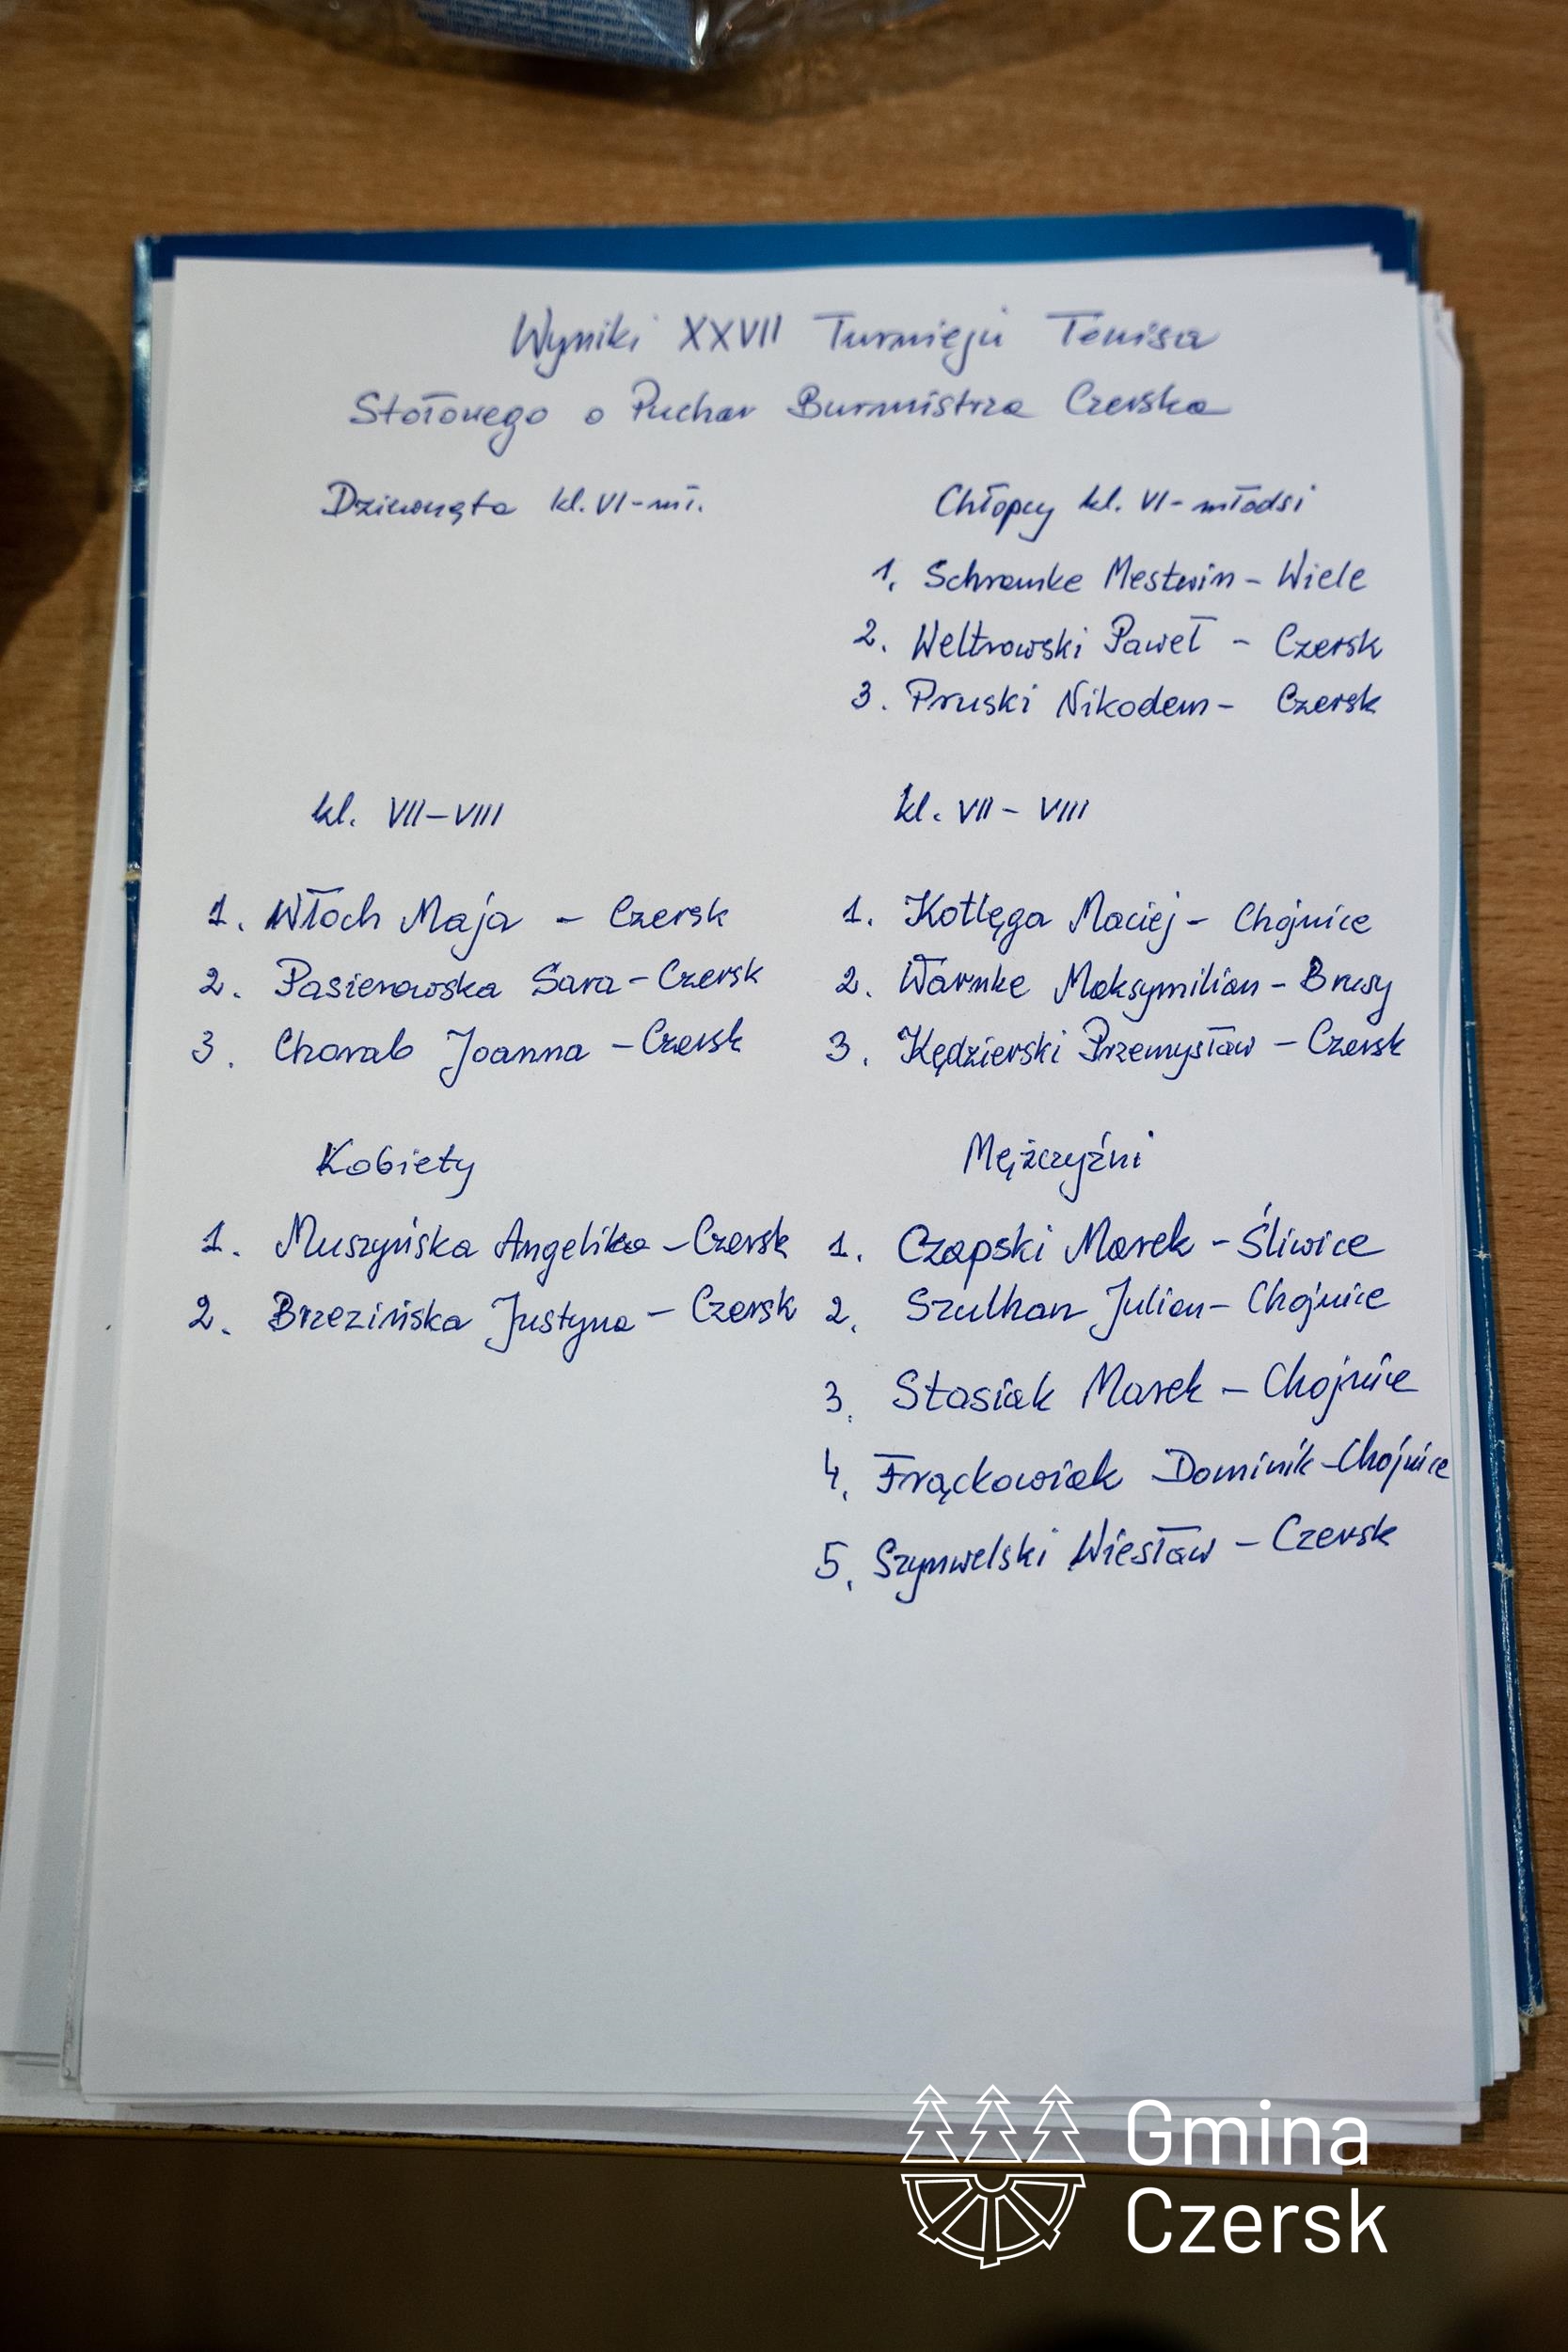 Wyniki XXVII Turnieju Tenisa
Stołowego o Puchar Burmistrza Czerska
Dziewczęta kl. VI-mł.
Chłopcy kl. VI-młodsi
1. Schramke Mestwin - Wiele
2. Weltrowski Paweł - Czersk
3. Pruski Nikodem - Czersk
kl. VII-VIII
1. Włoch Maja - Czersk
2. Pasierowska Sara - Czersk
3. Chorab Joanna - Czersk
kl. VII - VIII
1. Kotlęga Maciej - Chojnice
2. Warnke Maksymilian - Brusy
3. Kędzierski Przemysław - Czersk
Kobiety
1. Muszyńska Angelika - Czersk
2. Brzezińska Justyna - Czersk
Mężczyźni
1. Czapski Marek - Śliwice
2. Szulhan Julian - Chojnice
3. Stasiak Marek - Chojnice
4. Frąckowiak Dominik - Chojnice
5. Szynwelski Wiesław - Czersk
Gmina
Czersk